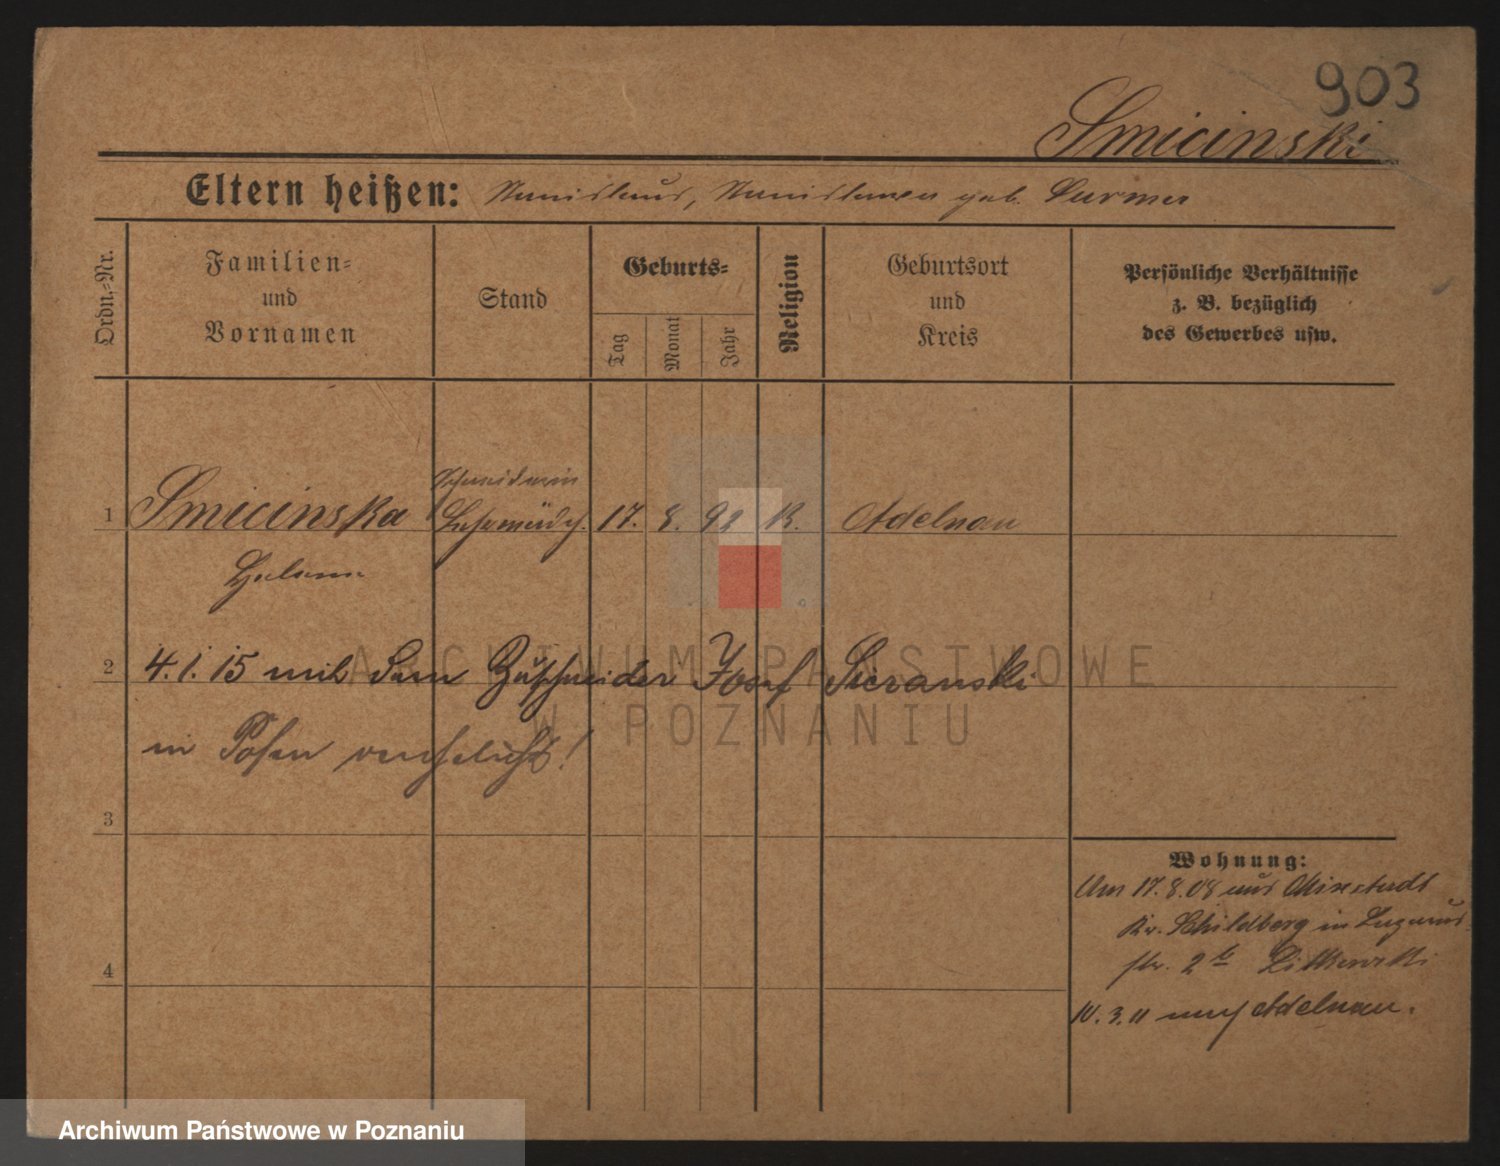 903
Smicinski
Eltern heißen: Stanislaus, Stanislawa geb. Surma
Ordn.-Nr.
Familien-
und
Vornamen
Stand
Geburts-
Tag
Monat
Jahr
Religion
Geburtsort
und
Kreis
Persönliche Verhältnisse
z. B. bezüglich
des Gewerbes usw.
Schneiderin
1 Smicinska Lehrmädch. 17. 8. 92 K. Adelnau
Helene
2 4.1.15 mit dem Zuschneider Josef Sieranski
in Posen verehelicht!
3
4
Wohnung:
Am 17.8.08 aus Mixstadt
Kr. Schildberg in Lazarus
str. 2 b
10.3.11 nach Adelnau.
ARCHIWUM PAŃSTWOWE
W POZNANIU
Archiwum Państwowe w Poznaniu